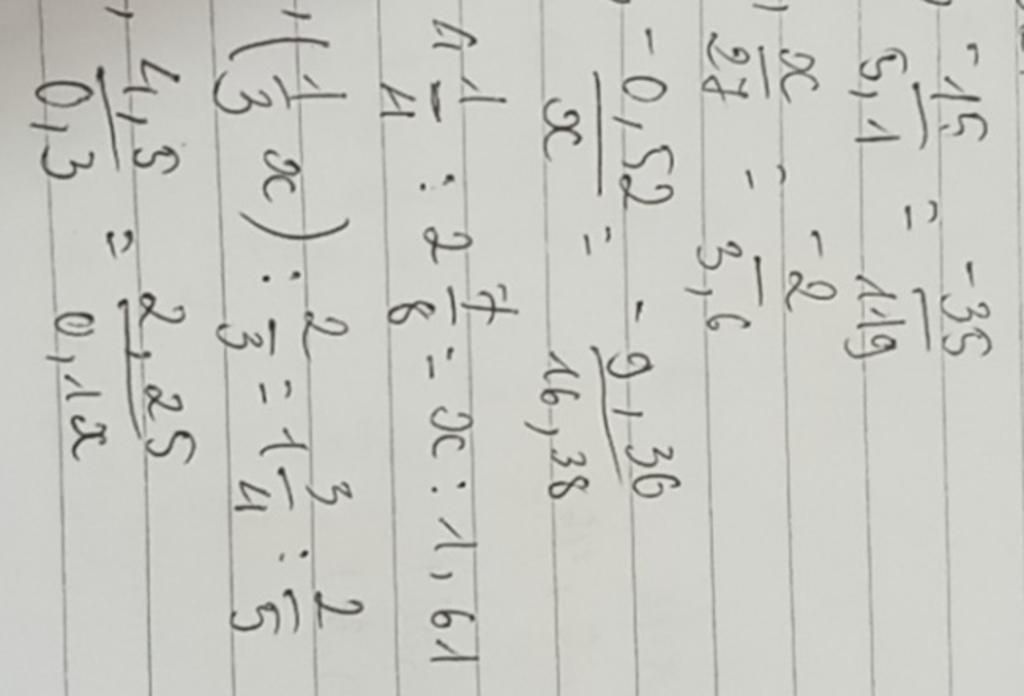 -15/5,1 = -35/119
x/27 = -2/3,6
-0,52/x = -9,36/16,38
4 1/4 : 2 7/8 = x : 1,61
(1/3 x) : 2/3 = 1 3/4 : 2/5
4,5/0,3 = 2,25/0,1x